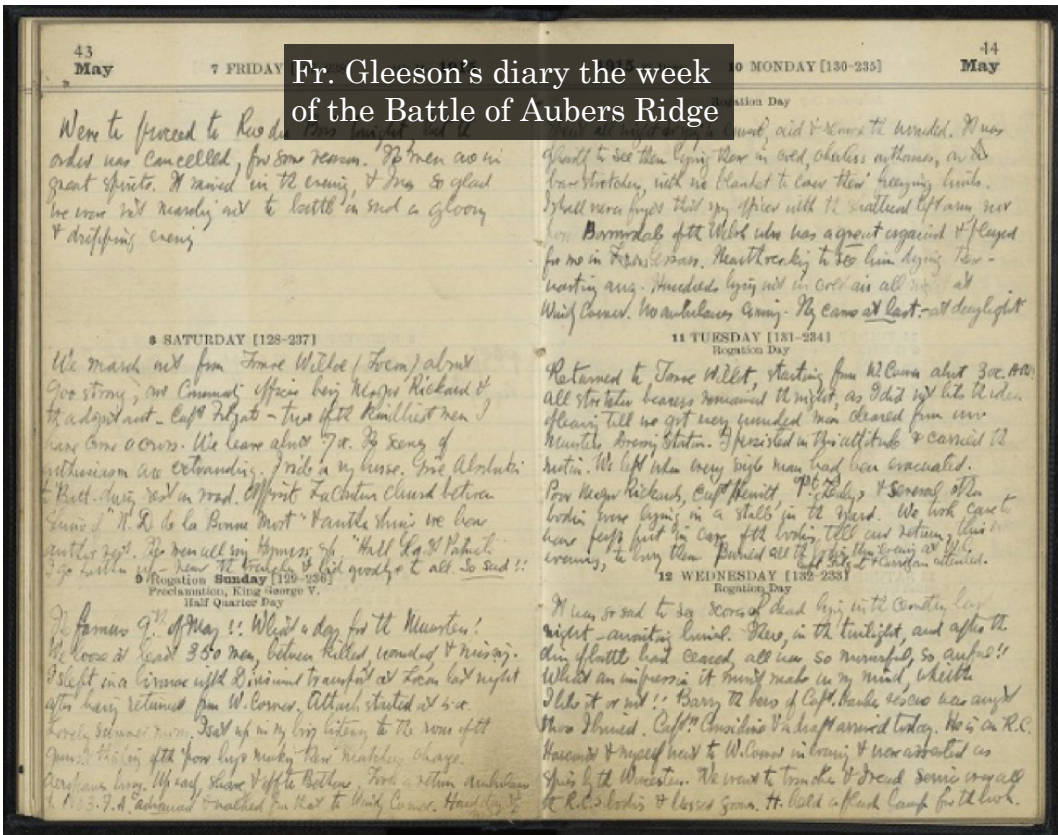 43
May
7 FRIDAY
Fr. Gleeson's diary the week
of the Battle of Aubers Ridge
Were to proceed to Rue du Bois tonight, but the
order was cancelled, for some reason. The men are in
great spirits. It rained in the evening, & I was so glad
we were not marching out to battle on such a gloomy
& dripping evening
8 SATURDAY [128-237]
We march out from Tombe Willot (Locon) about
900 strong, our Commanding Officer being Major Rickard &
the adjutant - Capt Filgate - two of the kindliest men I
have come across. We leave about 7 The scenes of
enthusiasm are I ride my horse. Give Absolution
to Batt. during rest in road, opposite church between
Shrine of "N. D de la Bonne Mort" & another shrine we have
another rest. The men all sing Hymns "Hail St Patrick"
I go further up - near the trenches & bid goodbye to all. So sad!!
9 Rogation Sunday [129-236]
Proclamation, King George V.
Half Quarter Day
The famous 9th of May!! What a day for the Munsters!
We loose at least 350 men, between killed, wounded & missing.
I slept in a with Divisional transport at Locon last night
after having returned from W. Corner. Attack started at 5
Lovely summer morn. I sat up in my listening to the roar of the
guns thinking of the poor boys their charge.
Aeroplanes
44
May
10 MONDAY [130-235]
Rogation Day
aid & remove the wounded. It was
ghastly to see them lying there in the cold, cheerless outhouses, on
bare stretchers, with no blanket to cover their freezing limbs.
I shall never forget that officer with the shattered left arm nor
of the Welsh who was a great organist & played
for me in Heartbreaking to see him dying there -
wasting away. Hundreds lying out in cold air all night at
Windy Corner. No ambulances coming. They came at last :- at daylight
11 TUESDAY [131-234]
Rogation Day
Returned to Tombe Willot, starting from W. Corner about 3
all stretcher bearers remained the night, as I did not like the idea
of leaving till we got every wounded man cleared from our
Munster Dressing Station. I persisted in this attitude & carried the
motion. We left when every single man had been evacuated.
Poor Major Rickard, Capt Hewitt, & several other
bodies were lying in a stable in the yard. We took care to
have put in care of the bodies, till our return, this
evening, to bury them. Buried all the
12 WEDNESDAY [132-233]
Rogation Day
It was so sad to see scores of dead lying in the cemetery last
night - awaiting burial. There, in the twilight, and after the
din of battle had ceased, all was so mournful, so awful!!
What an impression it must make on my mind, whether
I like it or not!! Barry the hero of Capt. Hawkes rescue was amongst
those I buried. Capt. Considine & a draft arrived today. He is an R.C.
& myself went to W. Corner in evening & were arrested as
spies by the Worcesters. We went to trenches & I read Service over all
the R.C.s bodies & blessed graves.